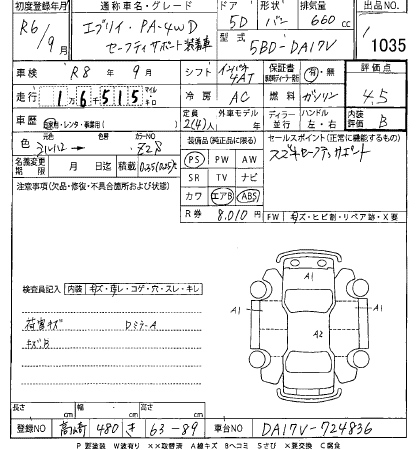 初度登録年月 通称車名・グレード ドア 形状 排気量 出品NO.
R6/9月 エブリイ・PA-4WD 5D バン 660cc 1035
セーフティサポート装着車 型式 5BD-DA17V
車検 R8年9月 シフト インパネ4AT 保証書 有・無 評価点
走行 1万6千515 マイル キロ 冷房 AC 燃料 ガソリン 4.5
車歴 自家用・レンタ・事業用( ) 定員 2(4)人 外車モデル 年 ディーラー 並行 ハンドル 左・右 内装評価 B
色 シルバー 色替 カラーNO Z2S 装備品(純正品に限る) セールスポイント(正常に機能するもの)
名義変更期限 月 日迄 積載 0.35(0.25)t PS PW AW スズキセーフティサポート
注意事項(欠品・修復・不具合箇所および状態) SR TV ナビ
カワ エアB ABS
R券 8,010円 FW キズ・ヒビ割・リペア跡・X要
検査員記入 内装 キズ・汚レ・コゲ・穴・スレ・キレ
荷室キズ Dミラ-A
キズB
A1 A1 A1 A2
長さ cm 幅 cm 高さ cm
登録NO 480 き 63-89 車台NO DA17V-724836
P要塗装 W波有り ××取替済 A線キズ Bヘコミ Sさび ×要交換 C腐食